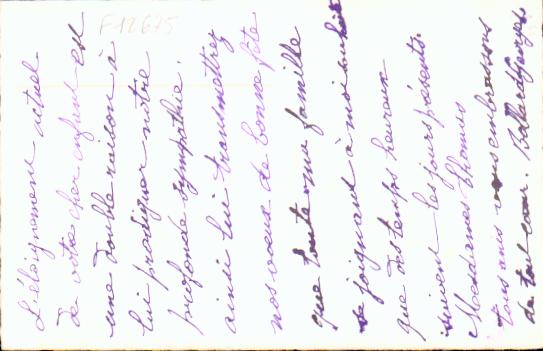 F12675
L'éloignement actuel
de votre cher enfant est
une double raison à
lui prodiguer notre
profonde sympathie.
ainsi lui transmettrez
nos vœux de bonne fête
que toute ma famille
se joignant à moi souhaite
que des temps heureux
suivent les jours présents.
Mesdames Thomas
tous nous vous embrassons
de tout cœur. Georges